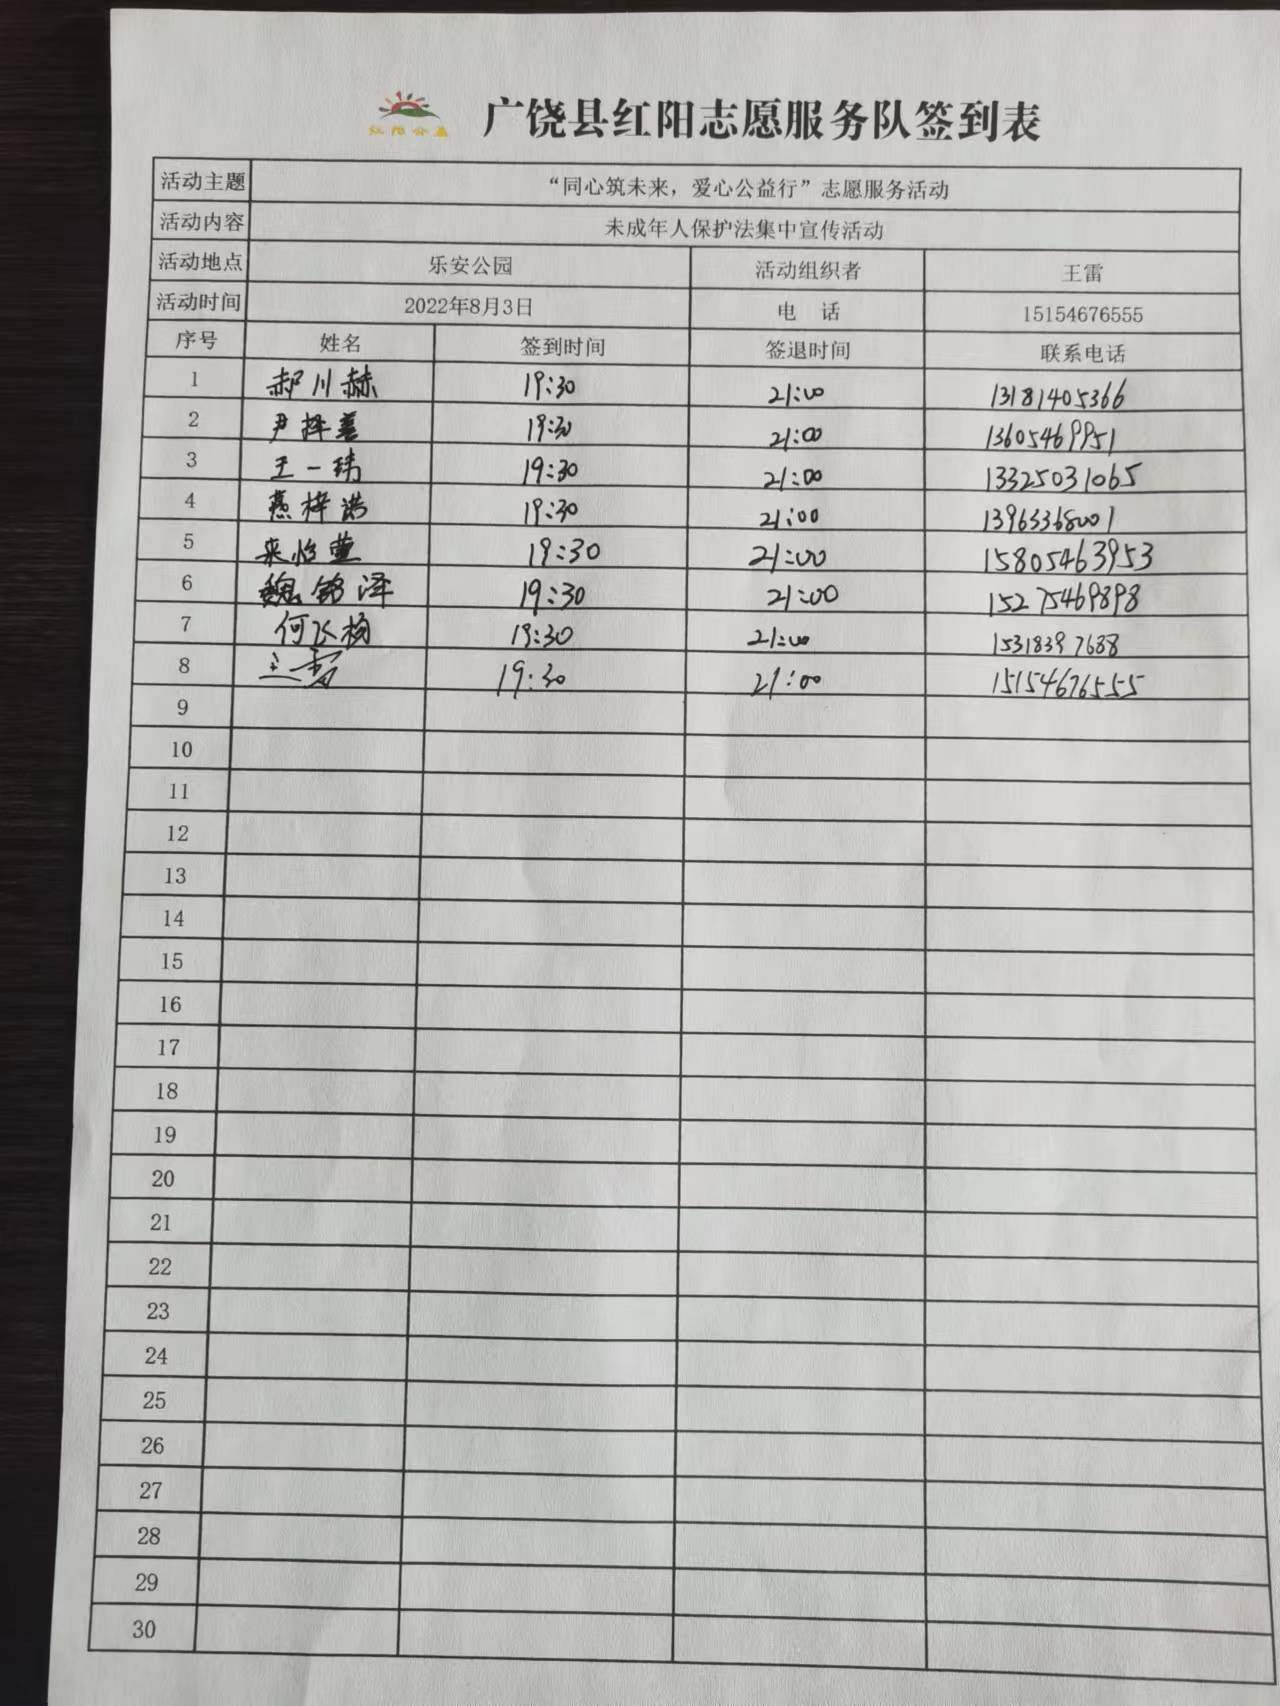 红阳公益
广饶县红阳志愿服务队签到表
活动主题 “同心筑未来，爱心公益行”志愿服务活动
活动内容 未成年人保护法集中宣传活动
活动地点 乐安公园 活动组织者 王雷
活动时间 2022年8月3日 电 话 15154676555
序号 姓名 签到时间 签退时间 联系电话
1 郝川赫 19:30 21:00 13181405366
2 尹择善 19:30 21:00 13605469951
3 王一玮 19:30 21:00 13325031065
4 燕梓浩 19:30 21:00 13963368001
5 来怡萱 19:30 21:00 15805463953
6 魏铭泽 19:30 21:00 15275469898
7 何飞杨 19:30 21:00 15318397688
8 王雷 19:30 21:00 15154676555
9
10
11
12
13
14
15
16
17
18
19
20
21
22
23
24
25
26
27
28
29
30